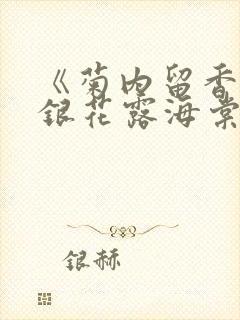 《菊内留香
銀花露海棠
銀赫